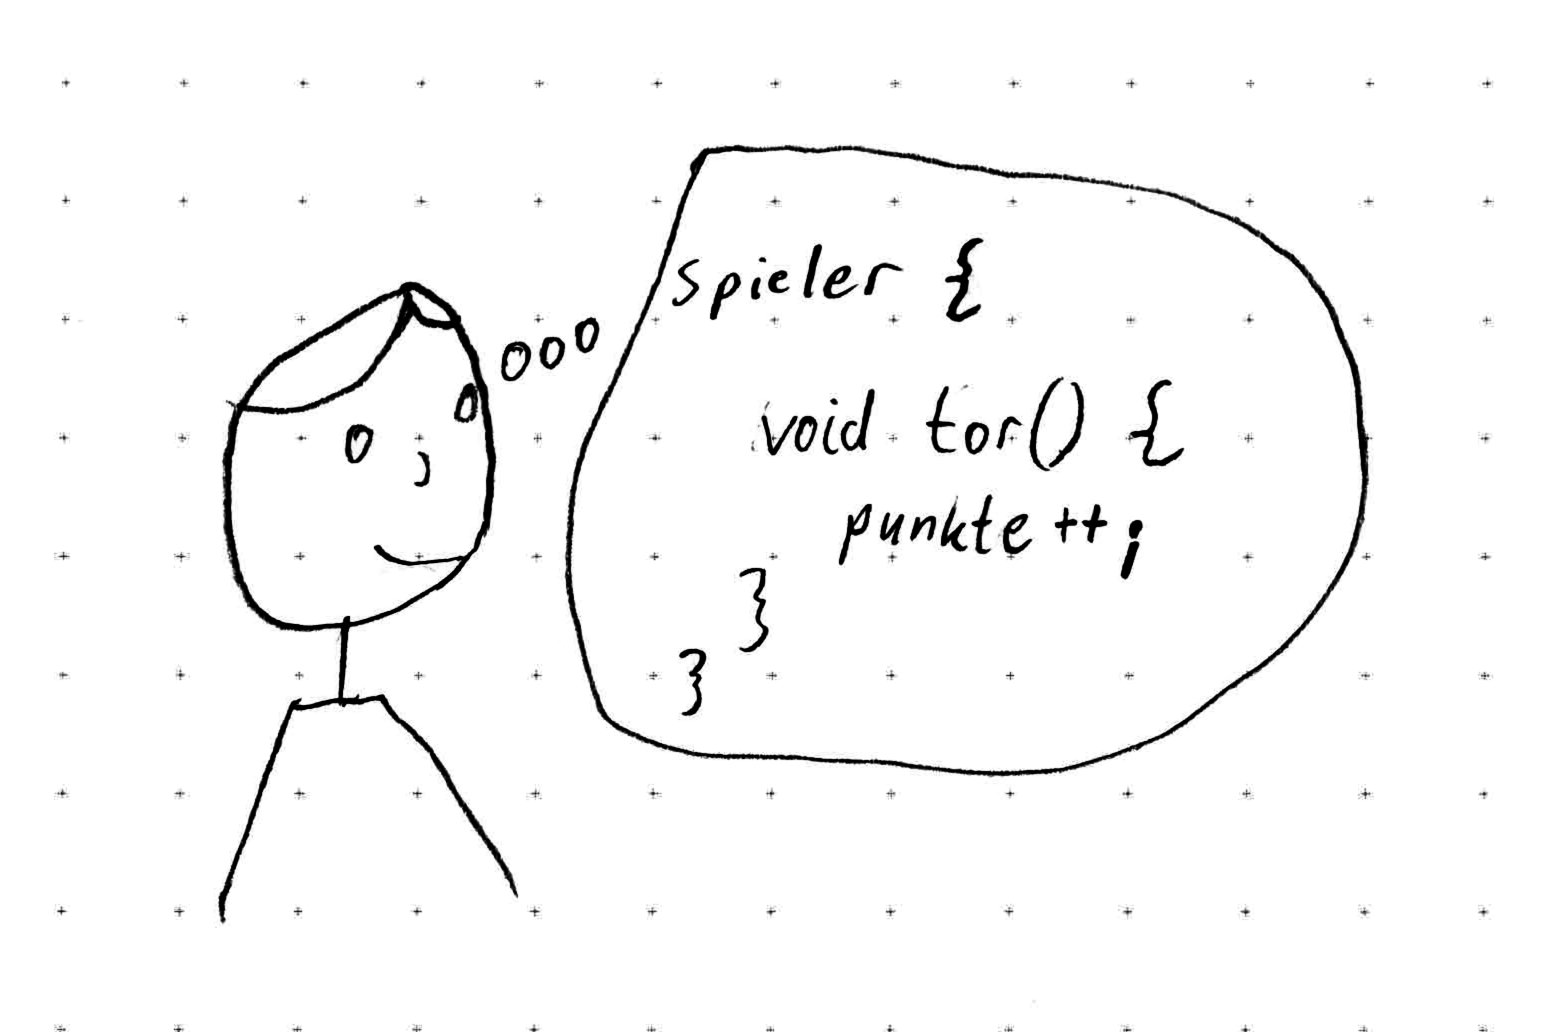 spieler {
void tor() {
punkte++;
}
}